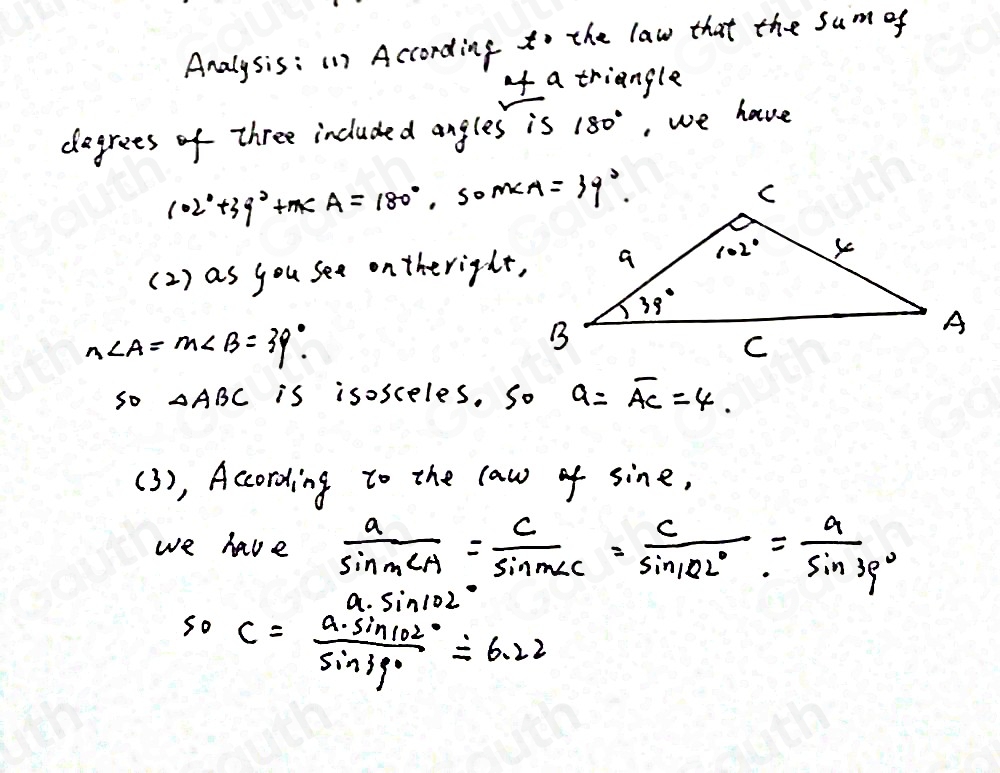 Analysis: (1) According to the law that the sum of
of a triangle
degrees of three included angles is 180°, we have
102°+39°+m<A = 180°, so m<A = 39°.
(2) as you see on the right,
C
a
102°
4
39°
B
A
C
m∠A = m∠B = 39°.
so △ABC is isosceles. so a = \overline{AC} = 4.
(3), According to the law of sine,
we have a/sin m∠A = C/sin m∠C = C/sin102°. = a/sin39°
a. sin102°
so C = a.sin102°/sin39° ≐ 6.22
Gauth